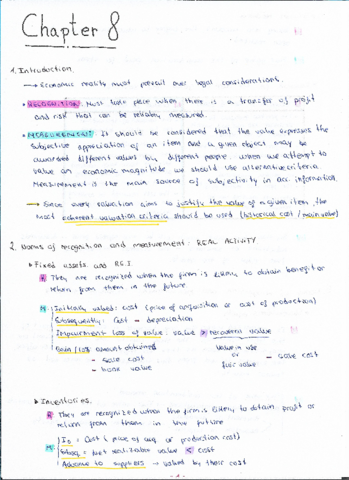 Chapter 8
1. Introduction
→ Economic reality must prevail over legal considerations.
• RECOGNITION: Must take place when there is a transfer of profit
and risk that can be reliably measured.
• MEASUREMENT: It should be considered that the value expresses the
subjective appreciation of an item and a given object may be
awarded different values by different people. When we attempt to
value an economic magnitude we should use alternative criteria.
Measurement is the main source of subjectivity in acc. information.
→ Since every valuation aims to justify the value of a given item, the
most coherent valuation criteria should be used (historical cost / main value)
2. Norms of recognition and measurement: REAL ACTIVITY
• Fixed assets and R.E.I.
R: They are recognized when the firm is likely to obtain benefit or
return from them in the future
M: Initially valued: cost (price of acquisition or cost of production)
Subsequently: Cost - depreciation
Impairment loss of value: value > recovered value
Gain / loss amount obtained
Value in use
- sale cost
or
- sale cost
- book value
fair value
• Inventories.
R: They are recognized when the firm is likely to obtain profit or
return from them in the future
I₀ = Cost (price of acq. or production cost)
M:
Subseq = Net realizable value < cost
Advance to suppliers → valued by their cost
- 1 -